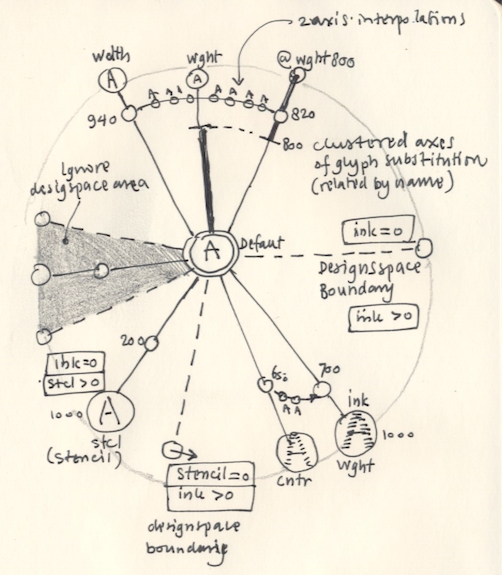 2 axis interpolations
width
wght
@wght 800
A
A
A A A
A A A A
940
820
800
clustered axes
of glyph substitution
(related by name)
Ignore
designspace area
A
Defaut
ink=0
Designsspace
Boundary
ink >0
200
650
700
A A
ink=0
stcl >0
1000
A
stcl
(stencil)
ink
A
1000
wght
A
cntr
Stencil=0
ink >0
designspace
boundarie